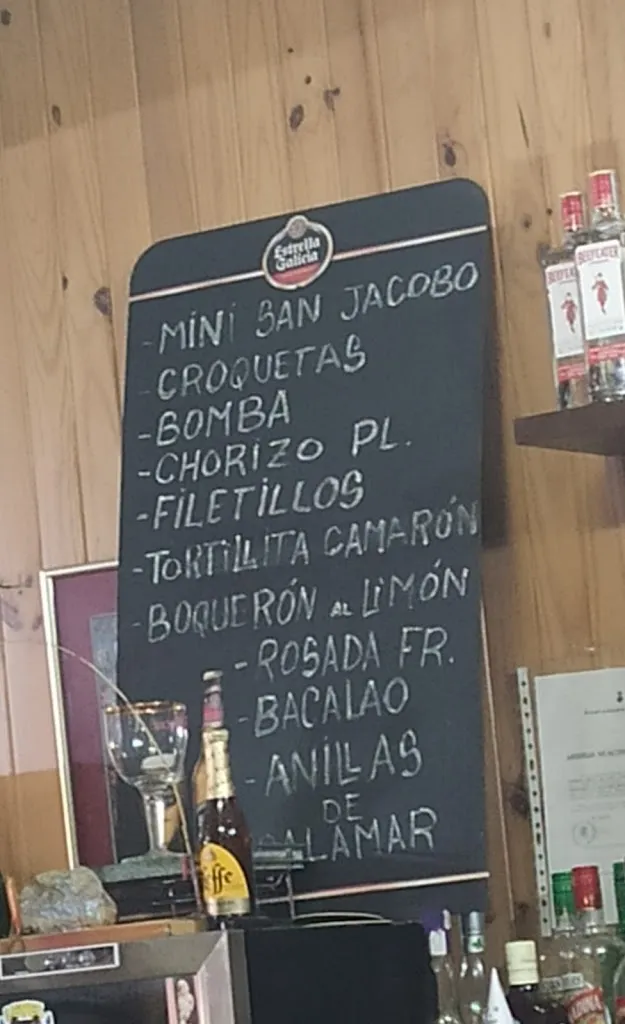 Estrella
Galicia
-MINI SAN JACOBO
-CROQUETAS
-BOMBA
-CHORIZO PL.
-FILETILLOS
-TORTILLITA CAMARÓN
-BOQUERÓN AL LIMÓN
-ROSADA FR.
-BACALAO
-ANILLAS
DE
CALAMAR
BEEFEATER
BEEFEATER
Leffe